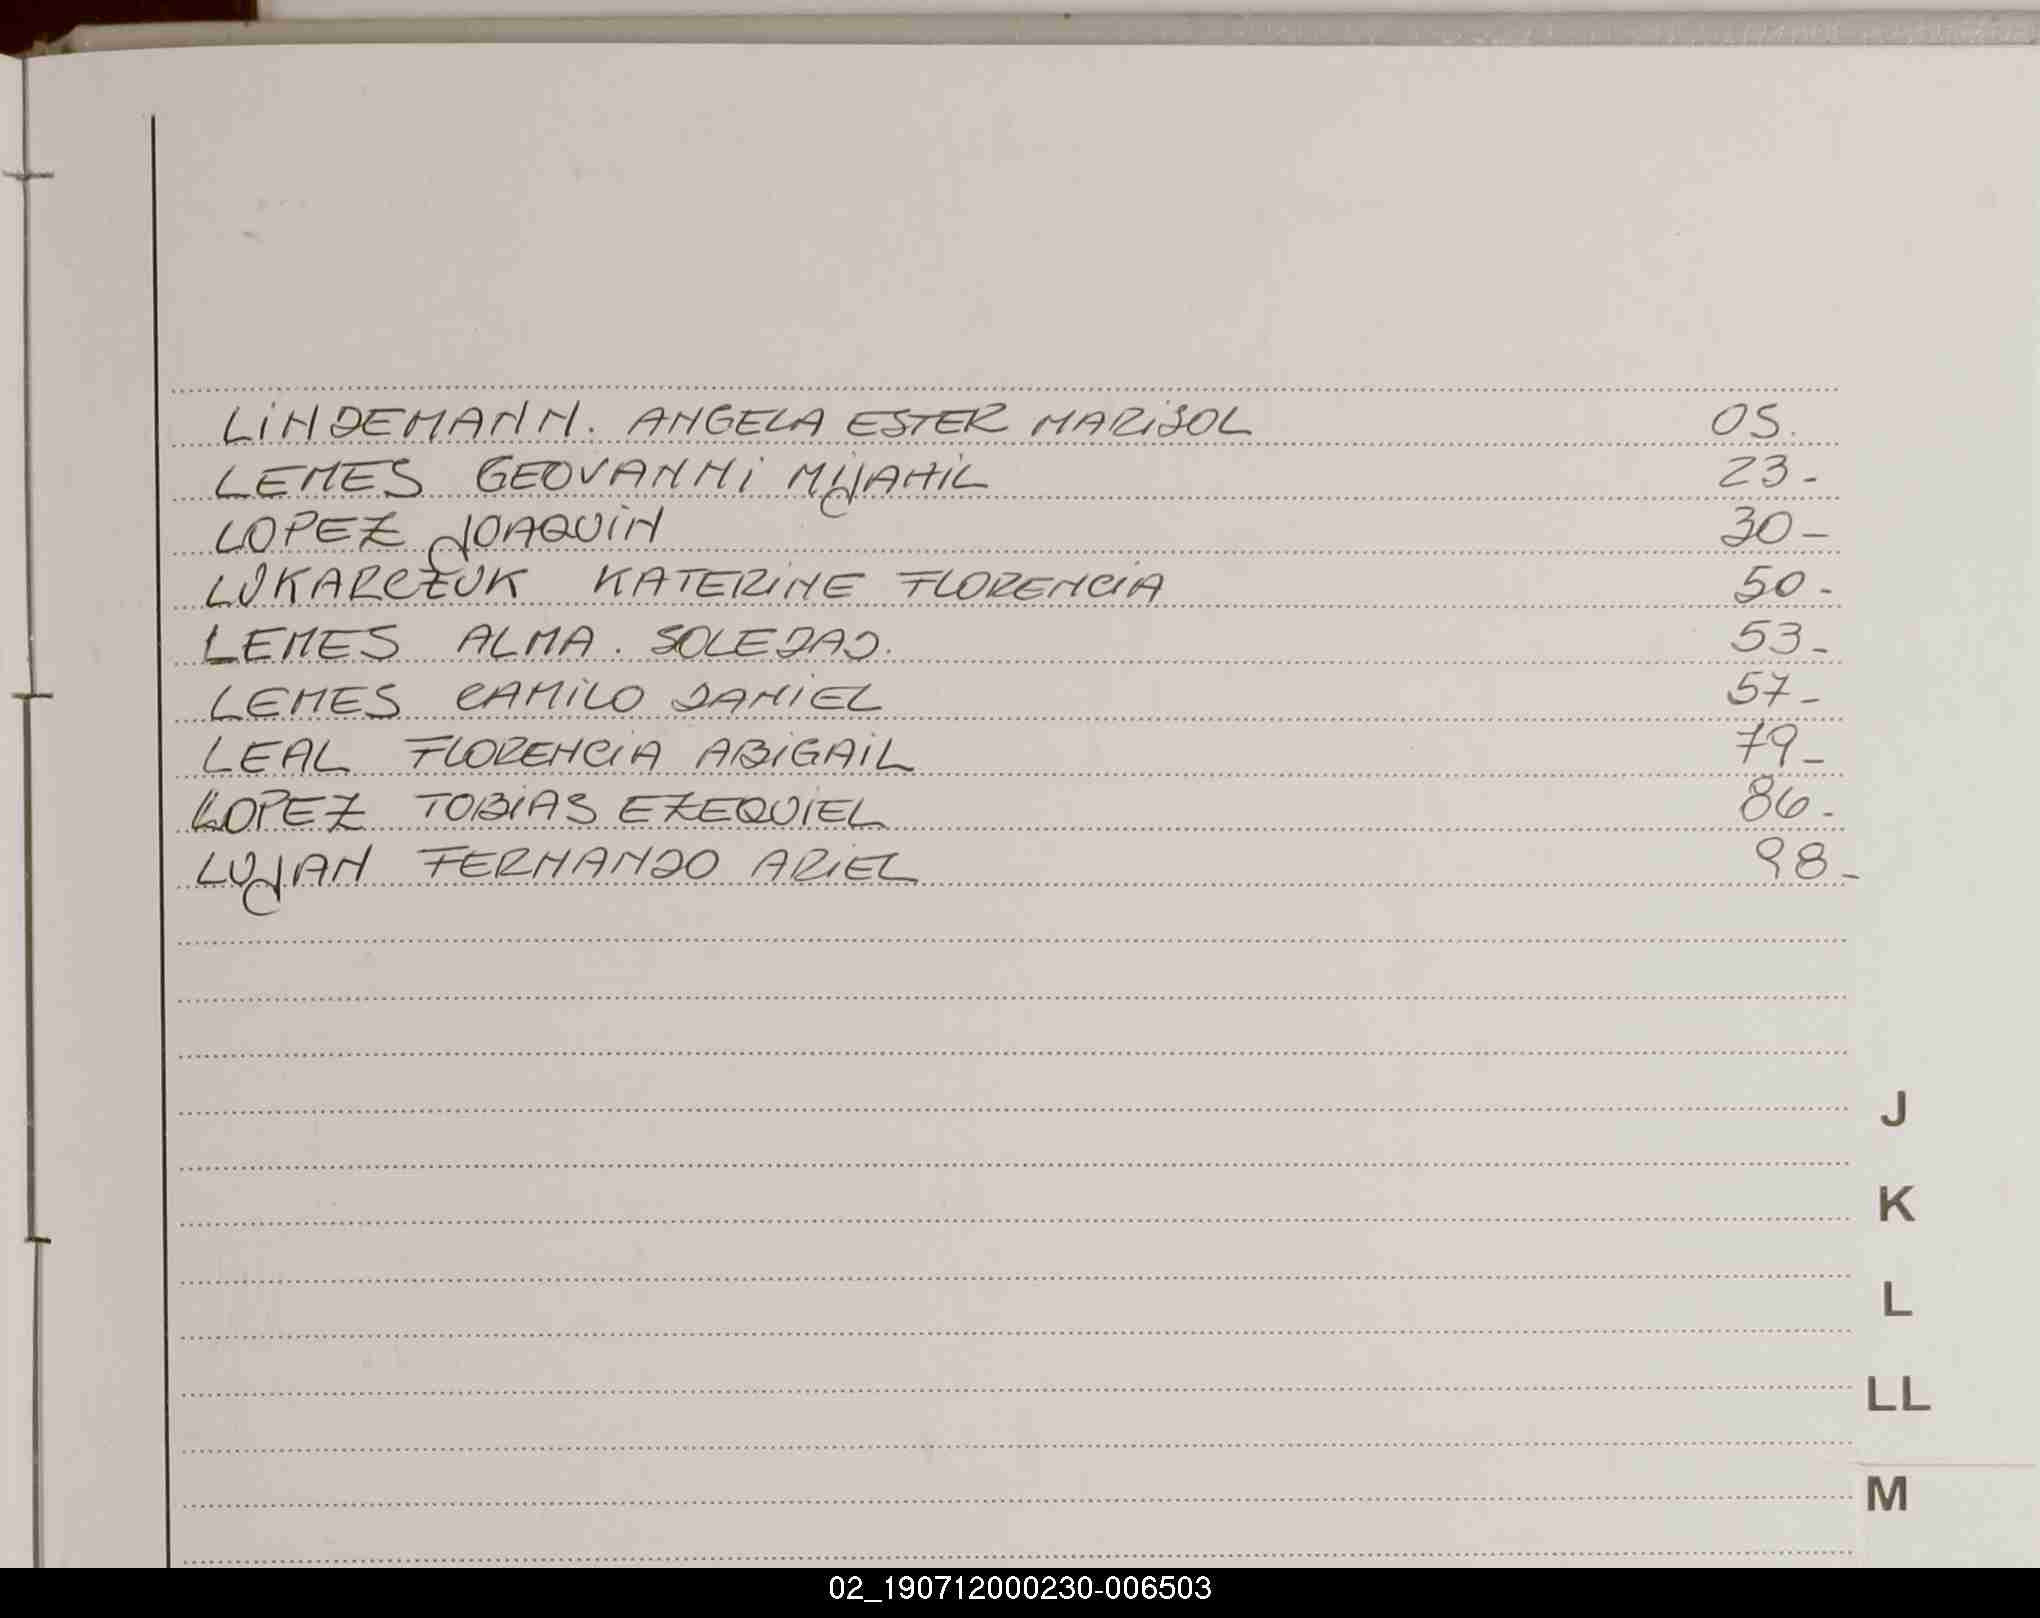 LINDEMANN. ANGELA ESTER MARISOL 05.
LEMES GEOVANNI MIJAHIL 23-
LOPEZ JOAQUIN 30-
LUKARCZUK KATERINE FLORENCIA 50-
LEMES ALMA. SOLEDAD. 53-
LEMES CAMILO DANIEL 57-
LEAL FLORENCIA ABIGAIL 79-
LOPEZ TOBIAS EZEQUIEL 86-
LUJAN FERNANDO ARIEL 98-
J
K
L
LL
M
02_190712000230-006503